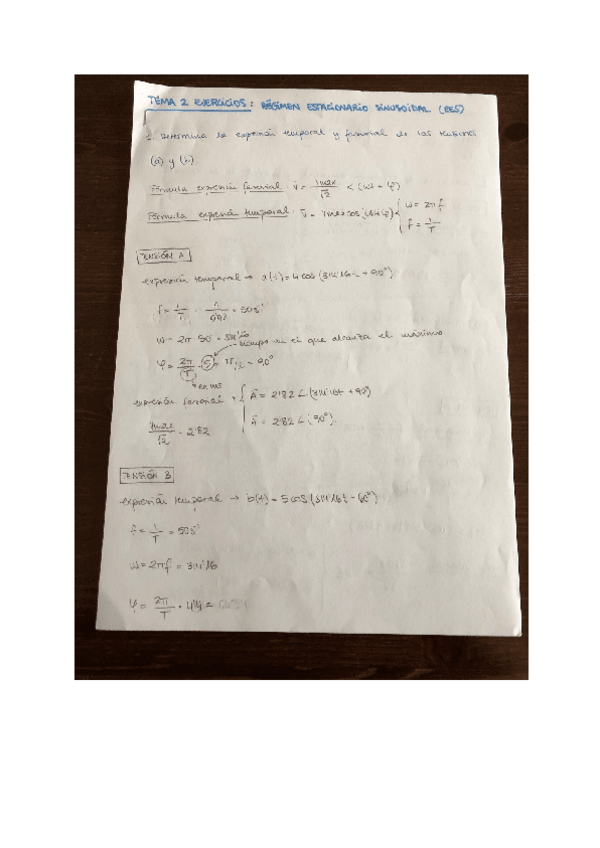 TEMA 2 EJERCICIOS: RÉGIMEN ESTACIONARIO SINUSOIDAL (RES)
1. Determina la expresión temporal y fasorial de las tensiones
(a) y (b).
Fórmula expresión fasorial: V = Vmax/√2 < (wt + φ)
Fórmula expresión temporal: V = Vmax cos (wt+φ) { w = 2πf
f = 1/T
TENSIÓN A
expresión temporal → a(t) = 4 cos (314'16t + 90°)
f = 1/T = = 50s⁻¹
w = 2π 50 = 314'16
tiempo en el que alcanza el máximo
φ = 2π/T · 5 = π/2 = 90°
en ms
expresión fasorial { Ā = 2'82 ∠ (314'16t + 90°)
Vmax/√2 = 2'82
Ā = 2'82 ∠ (90°).
TENSIÓN B
expresión temporal → b(t) = 5 cos (314'16t - 60°)
f = 1/T = 50s⁻¹
w = 2πf = 314'16
φ = 2π/T ·